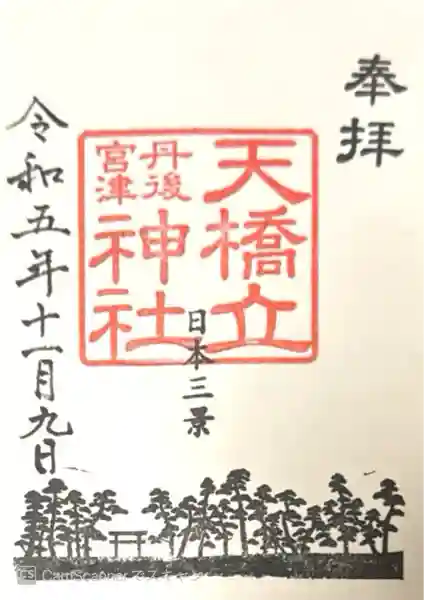 奉拝
天橋立
丹後
宮津
神社
日本三景
令和五年十一月九日
CS CamScanner でスキャン